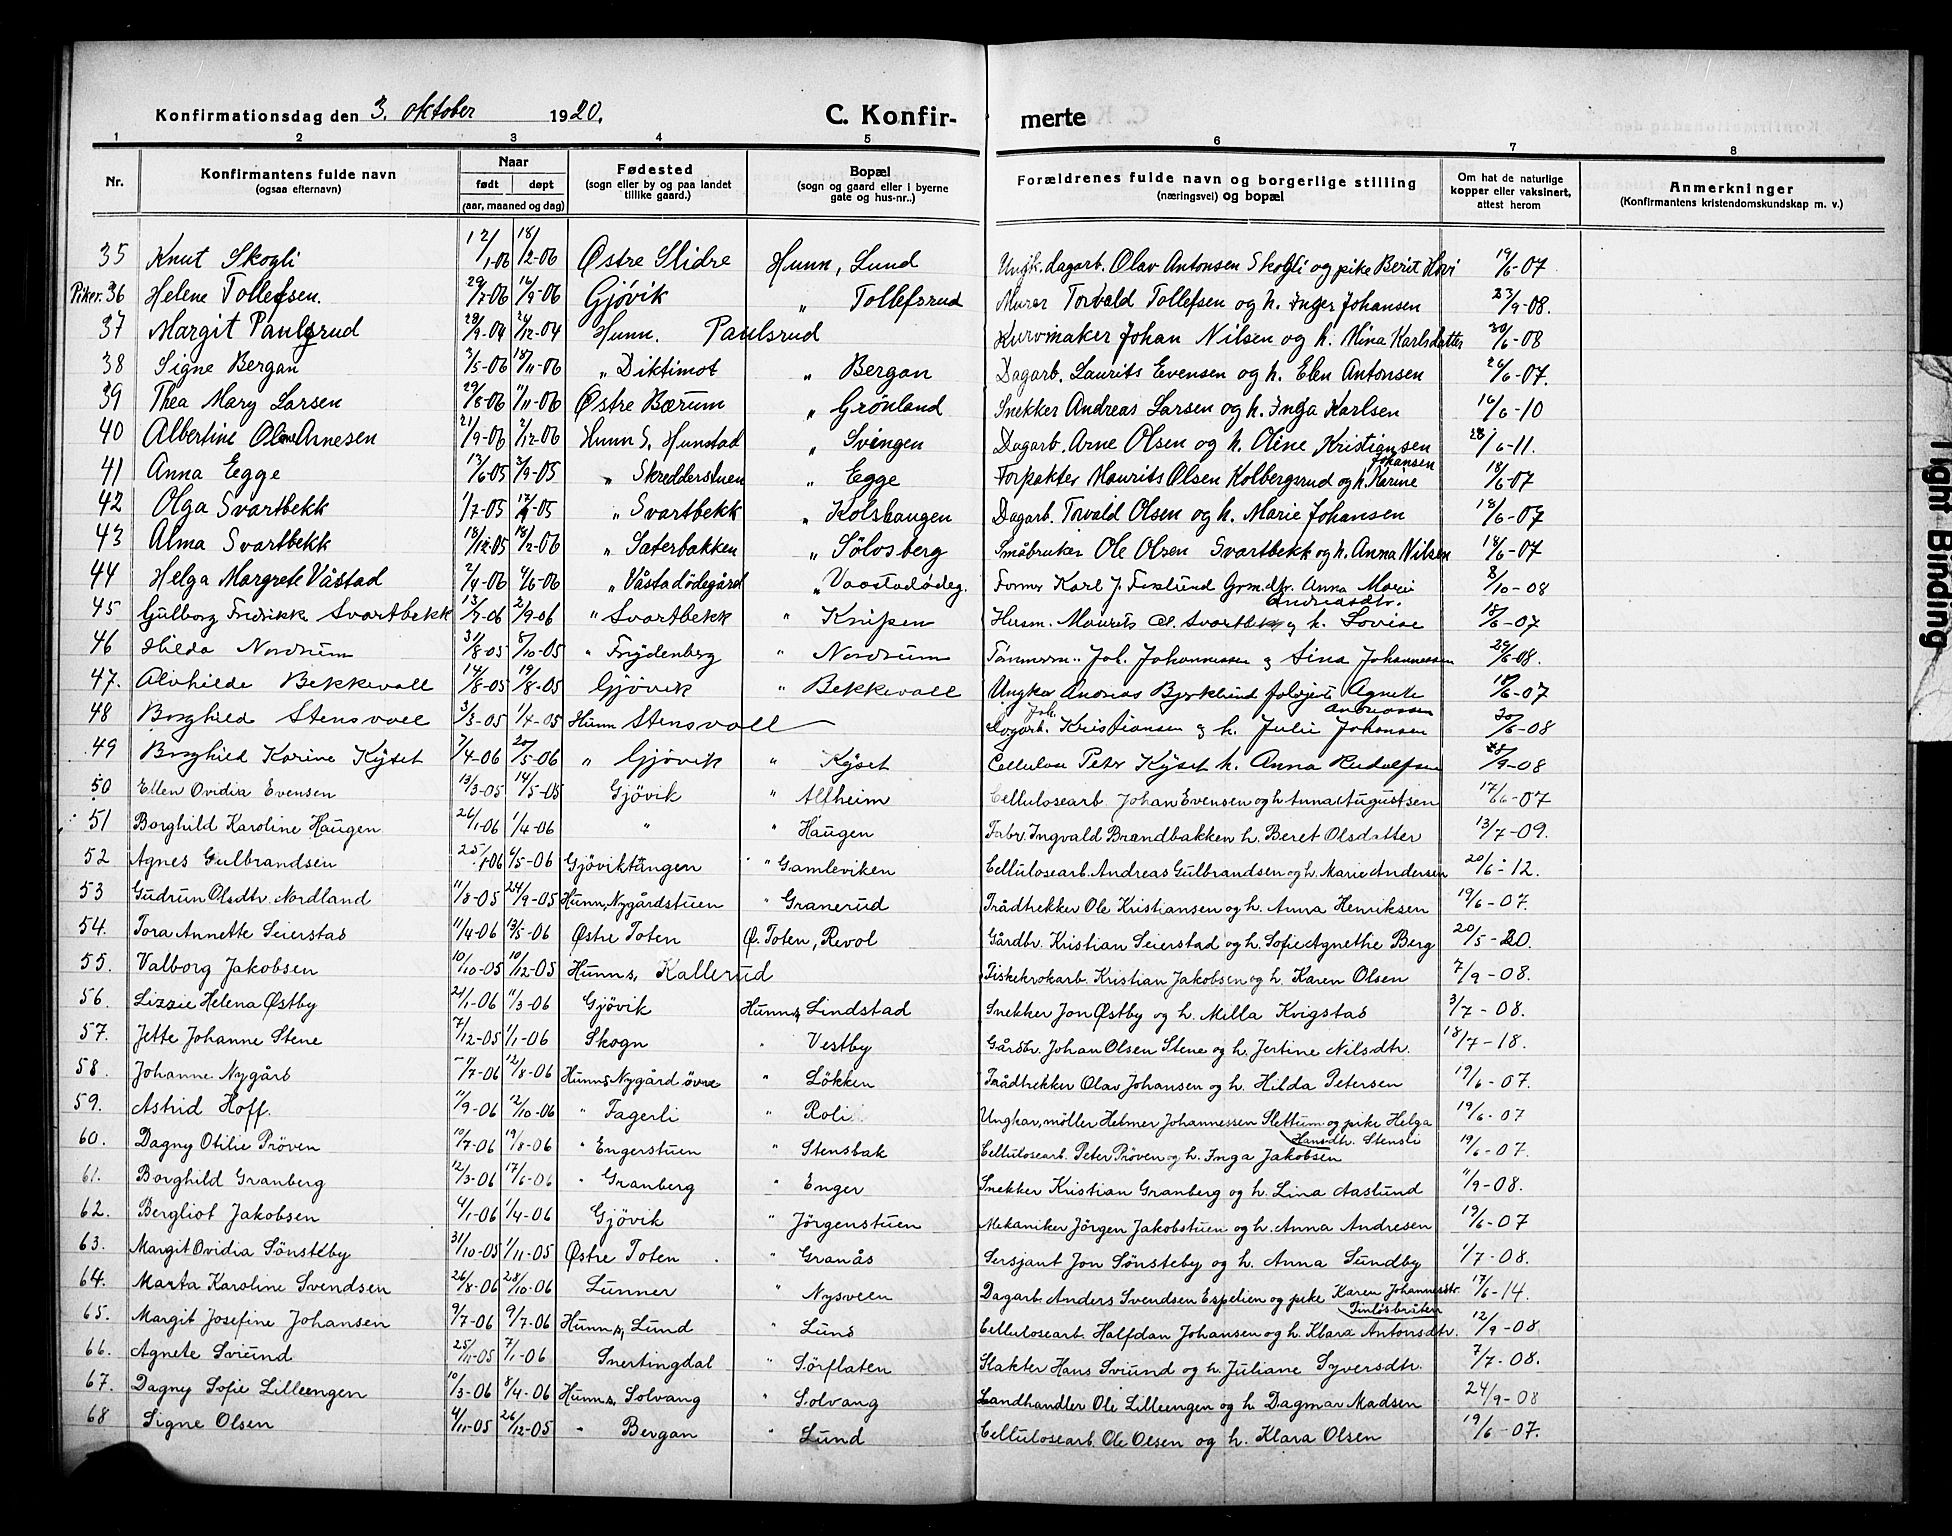 Konfirmationsdag den 3. oktober 1920. C. Konfir- merte
1 2 3 4 5 6 7 8
Nr. Konfirmantens fulde navn (ogsaa efternavn) Naar født døpt (aar, maaned og dag) Fødested (sogn eller by og paa landet tillike gaard.) Bopæl (sogn og gaard eller i byerne gate og hus-nr..) Forældrenes fulde navn og borgerlige stilling (næringsvei) og bopæl Om hat de naturlige kopper eller vaksinert, attest herom Anmerkninger (Konfirmantens kristendomskundskap m. v.)
35 Knut Skogli 12/1-06 18/2-06 Østre Slidre Hunn, Lund Ungk. dagarb. Olav Antonsen Skogli og pike Berit Hovi 19/6-07.
Piker. 36 Helene Tollefsen. 29/7-06 16/9-06 Gjøvik " Tollefsrud Murer Torvald Tollefsen og h. Inger Johansen 23/9-08.
37 Margit Paulsrud 28/9-04 26/12-04 Hunn. Paulsrud Kurvmaker Johan Nilsen og h. Mina Karlsdatter 30/6-08
38 Signe Bergan 3/5-06 18/11-06 " Diktimot " Bergan Dagarb. Laurits Evensen og h. Elen Antonsen 26/6-07.
39 Thea Mary Larsen 29/8-06 11/11-06 Østre Bærum " Grønland Snekker Andreas Larsen og h. Inga Karlsen 16/6-10
40 Albertine Oline Arnesen 21/9-06 2/12-06 Hunn s, Hunstad " Svingen Dagarb. Arne Olsen og h. Oline Kristiansen 28/6-11.
41 Anna Egge 13/6-05 3/9-05 " Skredderstuen " Egge Forpakter Maurits Olsen Kolbergsrud og h. Karine Johansen 18/6-07
42 Olga Svartbekk 1/7-05 17/9-05 " Svartbekk " Kolshaugen Dagarb. Torvald Olsen og h. Marie Johansen 18/6-07
43 Alma Svartbekk 18/12-05 18/2-06 " Sæterbakken " Sölosberg Småbruker Ole Olsen Svartbekk og h. Anna Nilsen 18/6-07
44 Helga Margrete Våstad 2/4-06 4/6-06 " Våstadödegård " Vaastadödeg. Former Karl J. Grm. dtr. Anna Marie Andreasdtr. 8/10-08
45 Gulborg Fredrikke Svartbekk 13/7-06 2/9-06 " Svartbekk " Knipen Husm. Maurits Svartbekk og h. Lovise 18/6-07
46 Hilda Nordrum 31/8-05 8/10-05 " Frydenberg " Nordrum Tømmerm. Joh. Johannessen & Lina Johannessen 29/6-08.
47. Alvhilde Bekkevoll 14/8-05 19/8-05 Gjövik " Bekkevoll Ungkar Andreas Bjerklund Agnete Andreassen 18/6-07
48 Borghild Stensvoll 3/3-05 1/4-05 Hunn Stensvoll Dagarb. Joh. Kristiansen & h. Julie Johansen 30/6-08
49 Borghild Karine Kyset 7/4-06 20/5-06 " Gjövik " Kyset Cellulose Peter Kyset h. Anna Rudolfsen 28/9-08
50 Ellen Ovidia Evensen 13/3-05 14/5-05 Gjövik " Alfheim Cellulosearb. Johan Evensen og h Anna Augustsen 17/6-07
51 Borghild Karoline Haugen 26/1-06 1/4-06 " " Haugen Fabr. Ingvald Brandbakken h. Beret Olsdatter 13/7-09.
52 Agnes Gulbrandsen 25/1-06 6/5-06 Gjöviktangen " Gamleviken Cellulosearb. Andreas Gulbrandsen og h. Marie Andersen 20/6-12.
53 Gudrun Olsdtr. Nordland 11/8-05 24/9-05 Hunn, Nygårdstuen " Granerud Trådtrekker Ole Kristiansen og h. Anna Henriksen 19/6-07.
54. Tora Annette Seierstad 11/4-06 13/5-06 Østre Toten Ø. Toten, Revol Gårdbr. Kristian Seierstad og h. Sofie Agnethe Berg 20/5-20.
55. Valborg Jakobsen 10/10-05 10/12-05 Hunn s, Kallerud Fiskekrokarb. Kristian Jakobsen og h. Karen Olsen 7/9-08.
56. Lizzie Helena Østby 21/1-06 11/3-06 Gjövik Hunn s, Lindstad Snekker Jon Østby og h. Milla Kvigstad 3/7-08.
57. Jette Johanne Stene 7/12-05 1/1-06 Skogn " Vestby Gårdbr. Johan Olsen Stene og h. Jertine Nilsdtr. 18/7-18.
58. Johanne Nygård 7/7-06 12/8-06 Hunn s Nygård övre " Lökken Trådtrekker Olav Johansen og h. Hilda Petersen 19/6-07.
59. Astrid Hoff. 11/9-06 12/10-06 " Fagerli " Roli Ungkar, möller Helmer Johannessen Slettum og pike Helga Hansdtr. Stensli 19/6-07
60. Dagny Otilie Pröven 10/7-06 19/8-06 " Engerstuen " Stensbak Cellulosearb. Peter Pröven og h. Inga Jakobsen 19/6-07.
61. Borghild Granberg 12/3-06 17/6-06 " Granberg " Enger Snekker Kristian Granberg og h. Lina Aaslund 11/9-08.
62. Bergliot Jakobsen 4/1-06 1/4-06 Gjövik " Jörgenstuen Mekaniker Jörgen Jakobstuen og h. Anna Andresen 19/6-07
63. Margit Ovidia Sönsteby 31/10-05 1/11-05 Østre Toten " Granås Sersjant Jon Sönsteby og h. Anna Sundby 1/7-08.
64. Marta Karoline Svendsen 26/8-06 28/10-06 Lunner " Nysveen Dagarb. Anders Svendsen Espelien og pike Karen Johannesdtr. Finlösbråten 17/6-14.
65. Margit Josefine Johansen 9/7-06 9/7-06 Hunn s, Lund " Lund Cellulosearb. Halfdan Johansen og h. Klara Antonsdtr. 12/9-08.
66. Agnete Sviund 25/11-05 7/1-06 Snertingdal " Sörflaten Slakter Hans Sviund og h. Juliane Syversdtr. 7/7-08.
67. Dagny Sofie Lilleengen 10/3-06 8/4-06 Hunn s, Solvang " Solvang Landhandler Ole Lilleengen og h. Dagmar Madsen 24/9-08
68 Signe Olsen 4/11-05 26/12-05 " Bergan " Lund Cellulosearb. Ole Olsen og h. Klara Olsen 19/6-07.
Tight Binding